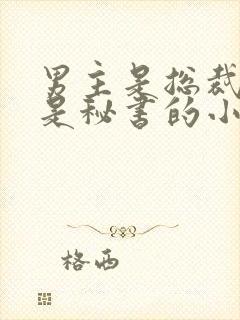 男主是总裁
是秘书的小
格西